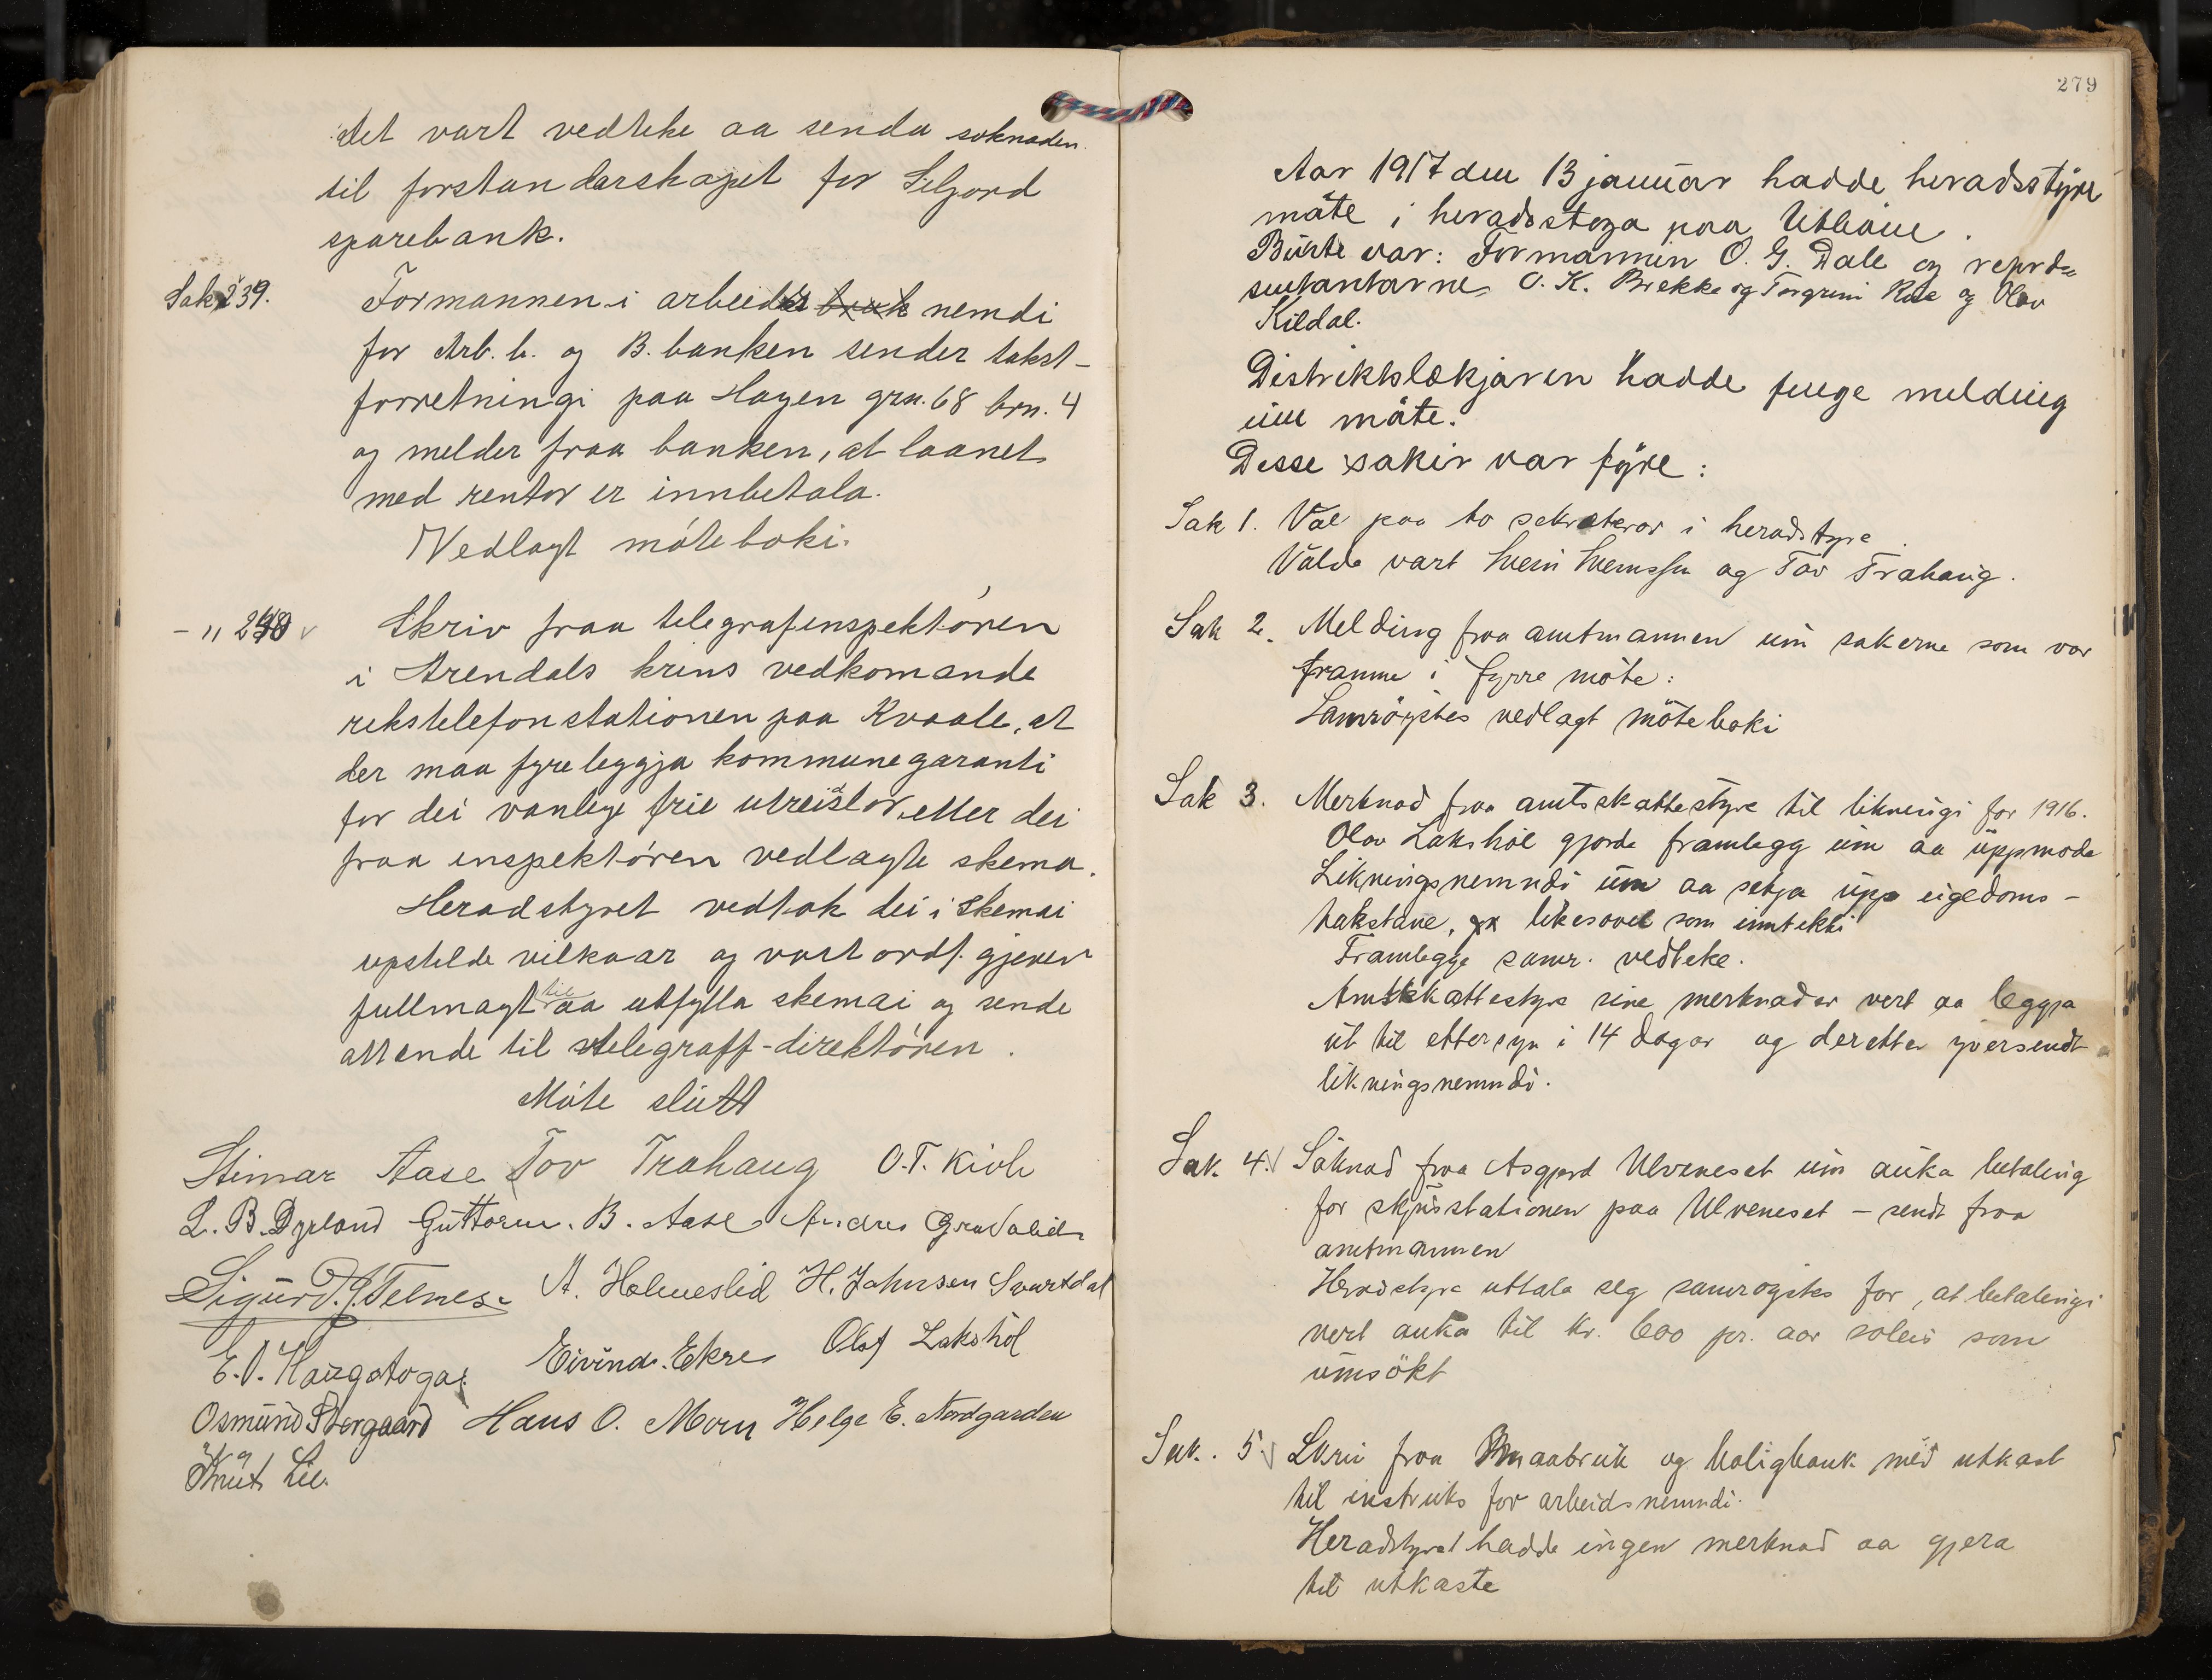 det vart vedteke aa senda soknaden
til forstandarskapet for Seljord
sparebank.
Sak 239. Formannen i arbeidar bruk nemdi
for Arb. b. og B. banken sender takst-
forretningi paa Hagen grn. 68 brn. 4
og melder fraa banken, at laanet
med rentor er innbetala.
Vedlagt móteboki.
- " 240 Skriv fraa telegrafinspektóren
i Arendals krins vedkomande
rikstelefonstationen paa Kvaale, at
der maa fyreleggja kommunegaranti
for dei vanlege frie utreislor etter dei
fraa inspektóren vedlagte skema.
Heradstyret vedtok dei i skemai
upstelde vilkaar og vart ordf. gjeven
fullmagt til aa utfylla skemai og sende
attende til telegraff-direktóren.
Móte slutt
Steinar Aase Tov Trahaug O.T. Kivle
L. B. Dyrland Guttorm. B. Aase Andres Gravalid
Sigurd. J. Telnes. A. Holmeslid H. Johnsen Svartdal
E. O. Haugstoga. Eivind. Ekre Olaf Lakshol
Osmund Storgaard Hans O. Moen Helge E. Nordgarden
Knut Lie.
279
Aar 1917 den 13 januar hadde heradsstyre
möte i heradsstoga paa Utböen.
Burte var: Formannen O. G. Dale og repræ=
sentantarne O. K. Brekke og Torgrim Rue og Olav
Kildal.
Distriktslækjaren hadde fenge melding
um möte.
Desse sakir var fyre:
Sak 1. Val paa to sekretærar i heradstyre.
Valde vart Svein Sveinssen og Tov Trahaug.
Sak 2. Melding fraa amtmannen um sakerne som var
framme i fyrre möte:
Samröystes vedlagt möteboki
Sak 3. Merknad fraa amtsskattestyre til likningi for 1916.
Olav Lakshol gjorde framlegg um aa uppmode
Likningsnemndi um aa setja upp eigedoms-
takstane, likesovel som inntekti
Framlegge samr. vedteke.
Amtskattestyre sine merknader vert aa leggja
ut til ettersyn i 14 dagar og deretter yversendt
likningsnemndi.
Sak 4. Söknad fraa Asgjerd Ulveneset um auka betaling
for skjusstationen paa Ulveneset - sendt fraa
amtmannen
Heradstyre uttala seg samröystes for, at betalingi
vert auka til kr. 600 pr. aar soleis som
umsökt
Sak. 5 Skriv fraa Smaabruk og boligbank med utkast
til instruks for arbeidsnemndi.
Heradstyret hadde ingen merknad aa gjera
til utkaste